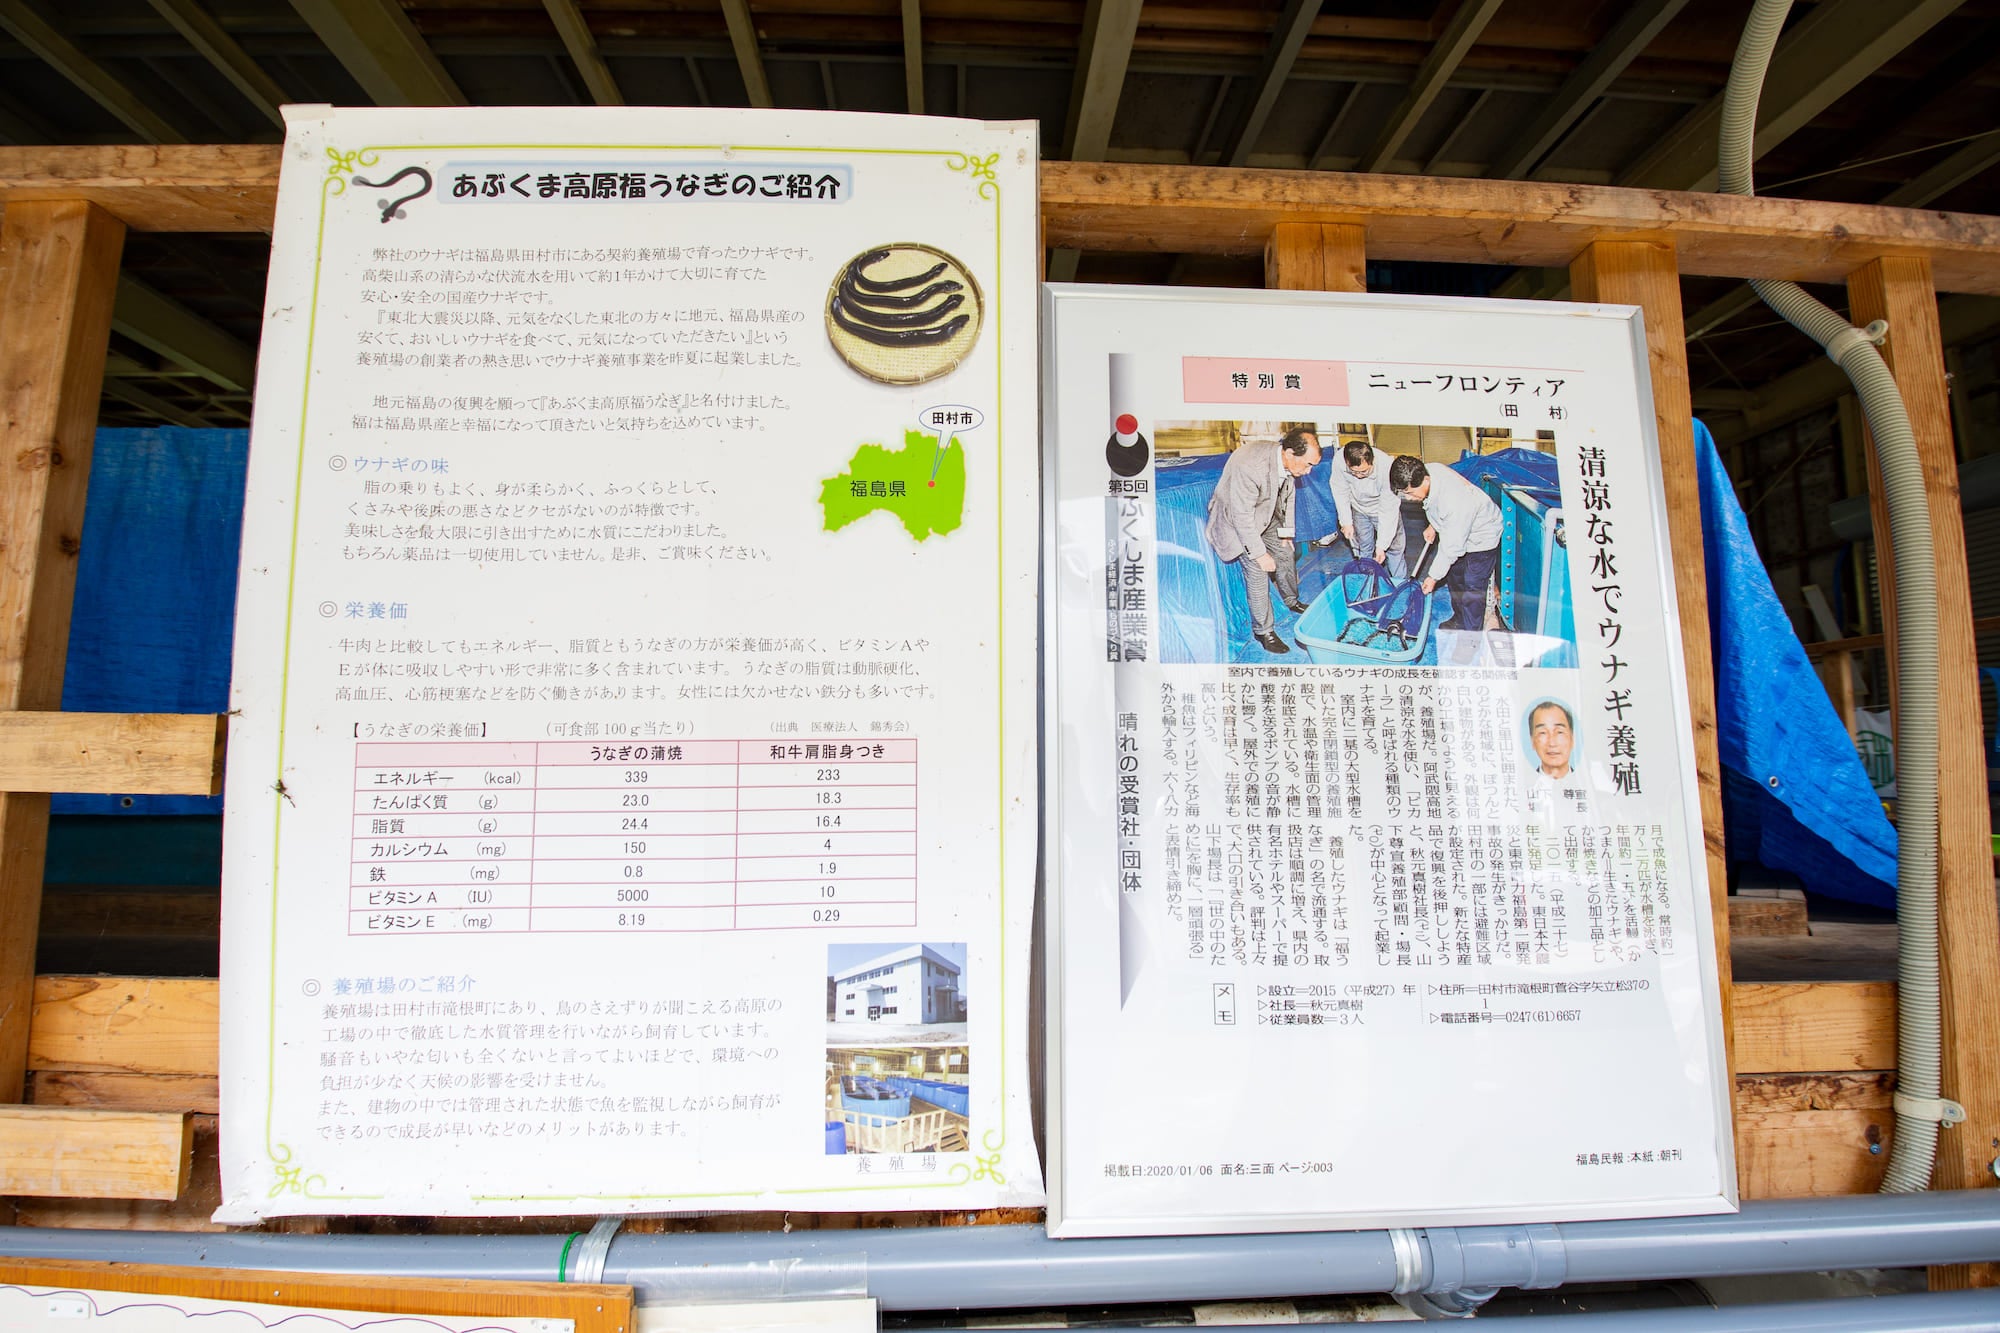 あぶくま高原福うなぎのご紹介
弊社のウナギは福島県田村市にある契約養殖場で育ったウナギです。
高柴山系の清らかな伏流水を用いて約1年かけて大切に育てた
安心・安全の国産ウナギです。
『東北大震災以降、元気をなくした東北の方々に地元、福島県産の
安くて、おいしいウナギを食べて、元気になっていただきたい』という
養殖場の創業者の熱き思いでウナギ養殖事業を昨夏に起業しました。
地元福島の復興を願って『あぶくま高原福うなぎ』と名付けました。
福は福島県産と幸福になって頂きたいと気持ちを込めています。
田村市
福島県
◎ ウナギの味
脂の乗りもよく、身が柔らかく、ふっくらとして、
くさみや後味の悪さなどクセがないのが特徴です。
美味しさを最大限に引き出すために水質にこだわりました。
もちろん薬品は一切使用していません。是非、ご賞味ください。
◎ 栄養価
牛肉と比較してもエネルギー、脂質ともうなぎの方が栄養価が高く、ビタミンAや
Eが体に吸収しやすい形で非常に多く含まれています。うなぎの脂質は動脈硬化、
高血圧、心筋梗塞などを防ぐ働きがあります。女性には欠かせない鉄分も多いです。
【うなぎの栄養価】 (可食部100g当たり) (出典 医療法人 錦秀会)
うなぎの蒲焼 和牛肩脂身つき
エネルギー (kcal) 339 233
たんぱく質 (g) 23.0 18.3
脂質 (g) 24.4 16.4
カルシウム (mg) 150 4
鉄 (mg) 0.8 1.9
ビタミンA (IU) 5000 10
ビタミンE (mg) 8.19 0.29
◎ 養殖場のご紹介
養殖場は田村市滝根町にあり、鳥のさえずりが聞こえる高原の
工場の中で徹底した水質管理を行いながら飼育しています。
騒音もいやな匂いも全くないと言ってよいほどで、環境への
負担が少なく天候の影響を受けません。
また、建物の中では管理された状態で魚を監視しながら飼育が
できるので成長が早いなどのメリットがあります。
養殖場
特別賞
ニューフロンティア
(田 村)
第5回
ふくしま産業賞
ふくしま経済・産業・ものづくり賞
晴れの受賞社・団体
清涼な水でウナギ養殖
室内で養殖しているウナギの成長を確認する関係者
水田と里山に囲まれた、
のどかな地域に、ぽつんと
白い建物がある。外観は何
かの工場のように見える
が、養殖場だ。阿武隈高地
の清涼な水を使い、「ビカ
ーラ」と呼ばれる種類のウ
ナギを育てる。
室内に二基の大型水槽を
置いた完全閉鎖型の養殖施
設で、水温や衛生面の管理
が徹底されている。水槽に
酸素を送るポンプの音が静
かに響く。屋外での養殖に
比べ成育は早く、生存率も
高いという。
稚魚はフィリピンなど海
外から輸入する。六~八カ
山下 尊宣
場長
月で成魚になる。常時約一
万~二万匹が水槽を泳ぎ、
年間約一・五㌧を活鰻(か
つまん=生きたウナギ)や、
かば焼きなどの加工品とし
て出荷する。
二〇一五(平成二十七)
年に発足した。東日本大震
災と東京電力福島第一原発
事故の発生がきっかけだ。
田村市の一部には避難区域
が設定された。新たな特産
品で復興を後押ししよう
と、秋元真樹社長(七三)、山
下尊宣養殖部顧問・場長
(七〇)が中心となって起業し
た。
養殖したウナギは「福う
なぎ」の名で流通する。取
扱店は順調に増え、県内の
有名ホテルやスーパーで提
供されている。評判は上々
で、大口の引き合いもある。
山下場長は「『世の中のた
めに』を胸に、一層頑張る」
と表情引き締めた。
メモ
▷設立=2015(平成27)年
▷社長=秋元真樹
▷従業員数=3人
▷住所=田村市滝根町菅谷字矢立松37の
1
▷電話番号=0247(61)6657
掲載日:2020/01/06 面名:三面 ページ:003
福島民報:本紙:朝刊